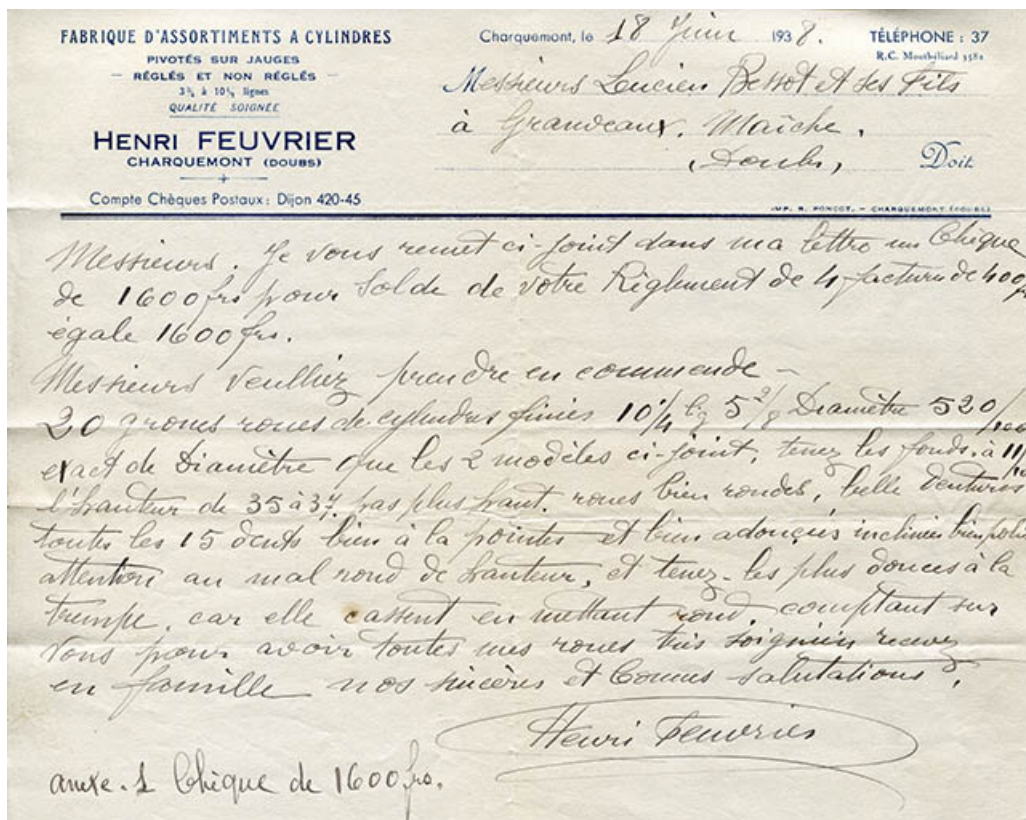 FABRIQUE D'ASSORTIMENTS A CYLINDRES
PIVOTÉS SUR JAUGES
— RÉGLÉS ET NON RÉGLÉS —
3¾ à 10½ lignes
QUALITÉ SOIGNÉE
HENRI FEUVRIER
CHARQUEMONT (DOUBS)
Compte Chèques Postaux : Dijon 420-45
Charquemont, le 18 Juin 1938.
TÉLÉPHONE : 37
R.C. Montbéliard 3581
Messieurs Lucien Bessot et ses Fils
à Grandeaux. Maîche.
(Doubs) Doit
IMP. R. PONCOT. — CHARQUEMONT (DOUBS)
Messieurs. Je vous remet ci-joint dans ma lettre un Chèque
de 1600 frs pour Solde de votre Règlement de 4 facture de 400 frs
égale 1600 frs.
Messieurs Veulliez prendre en commende —
20 groses roues de cylindres finies 10¼ lig 5 2/8 Diamètre 520/100
exact de Diamètre que les 2 modèles ci-joint, tenez les fonds à 11/100
l'hauteur de 35 à 37. pas plus haut. roues bien rondes, belle dentures
toutes les 15 dents bien à la pointes et bien adonçies inclinées bien polis
attention au mal rond de hauteur, et tenez-les plus douces à la
trempe, car elle cassent en mettant rond, comptant sur
Vous pour avoir toutes mes roues très soignées recevez
en famille nos sincères et bonnes salutations.
Henri Feuvrier
anexe. 1 Chèque de 1600 frs.